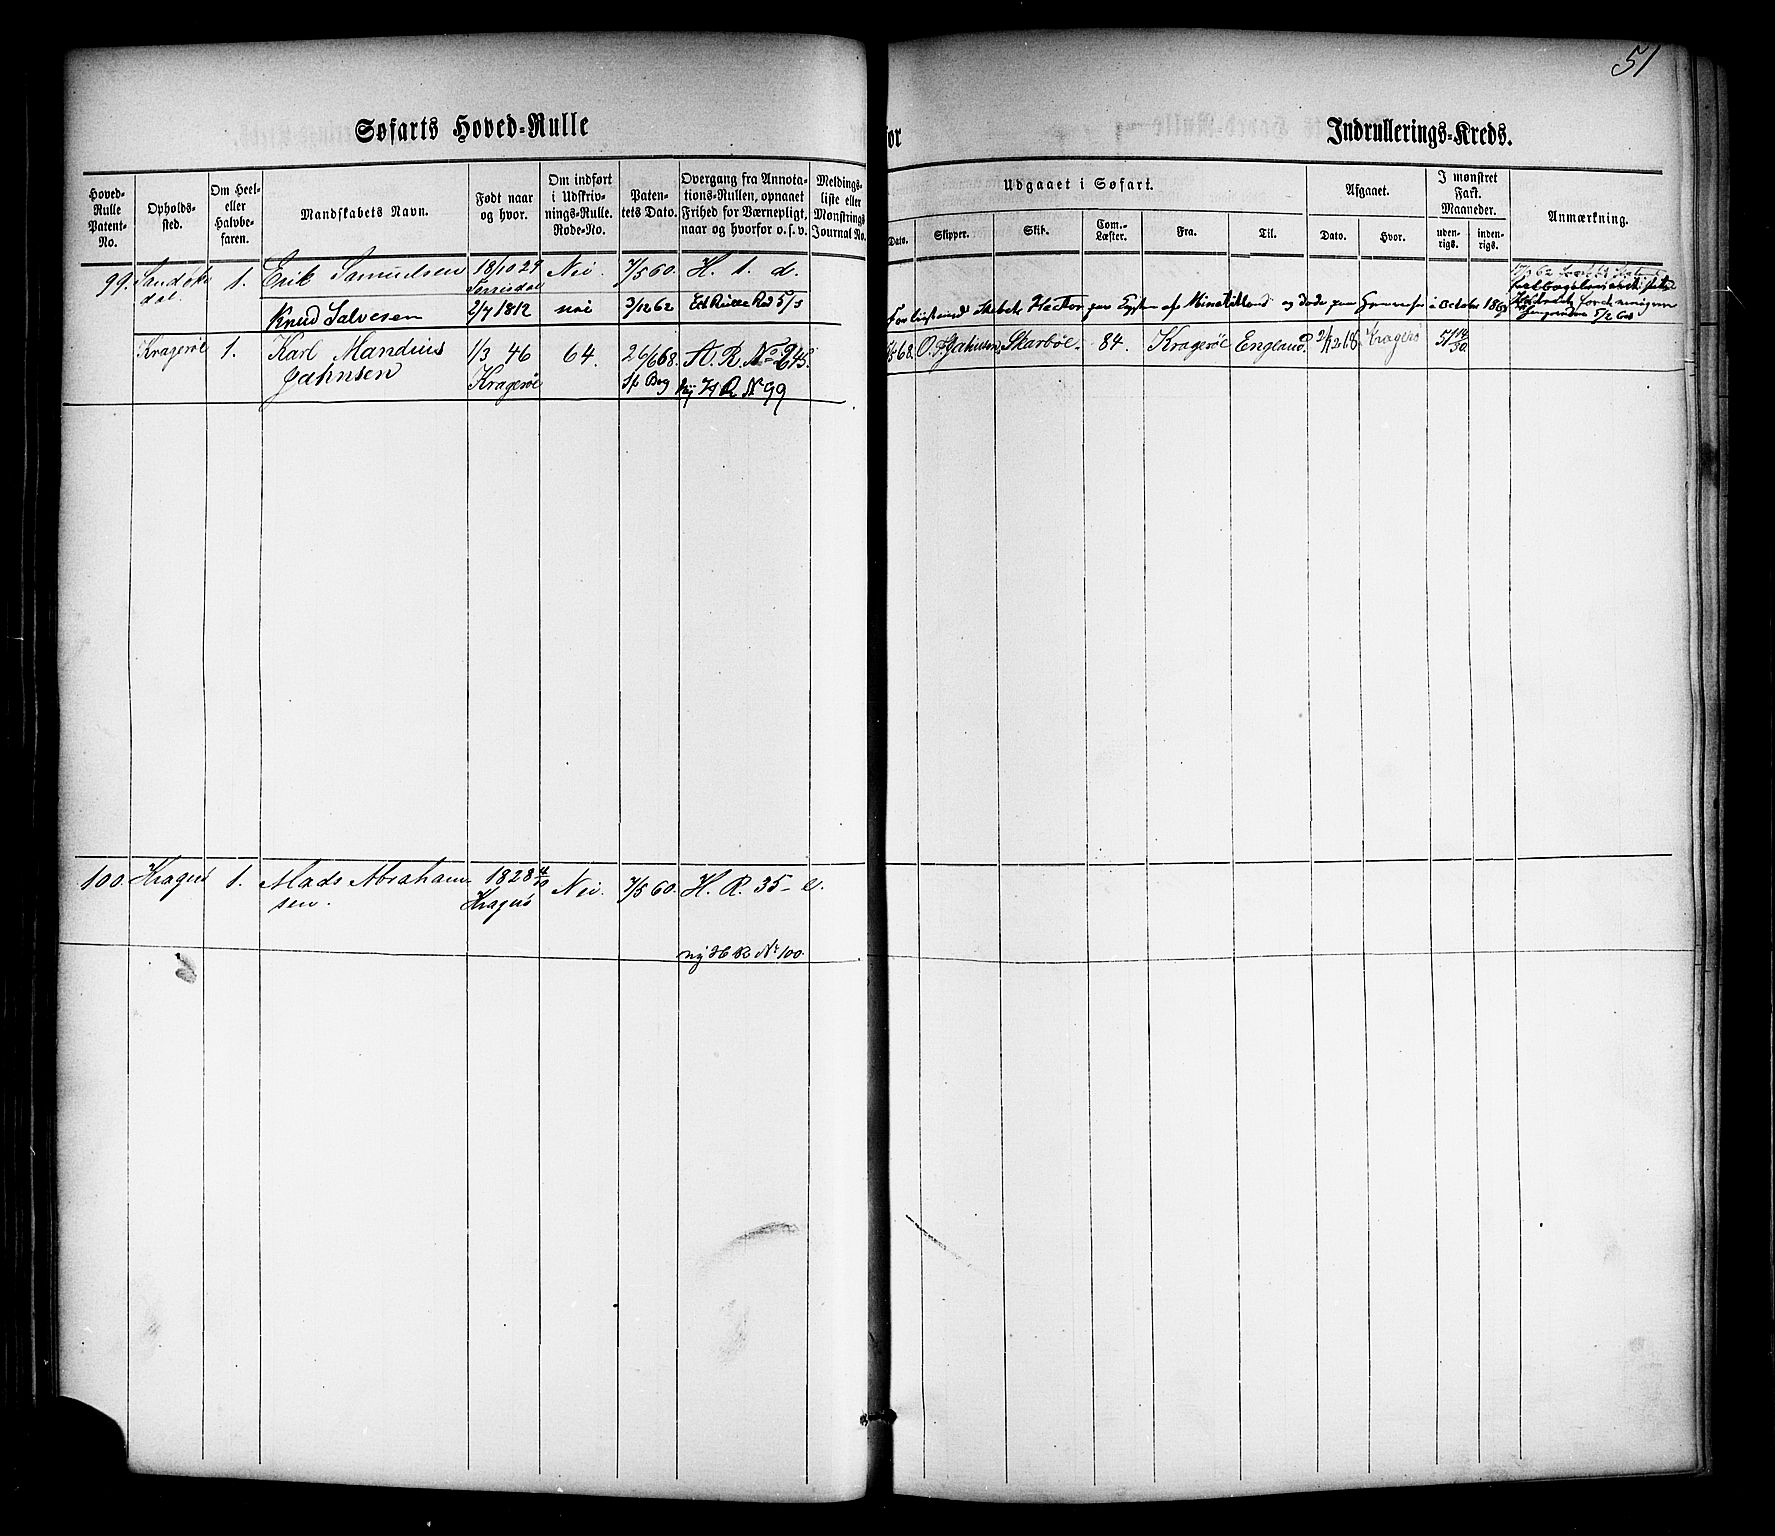 51
Søfarts Hoved-Rulle
for
Indrullerings-Kreds.
Hoved-Rulle Patent-No.
Opholds-sted.
Om Heel- eller Halvbe-faren.
Mandskabets Navn.
Født naar og hvor.
Om indført i Udskriv-nings-Rulle. Rode-No.
Paten-tets Dato.
Overgang fra Annota-tions-Rullen, opnaaet Frihed for Værnepligt, naar og hvorfor o. s. v.
Meldings-liste eller Mønstrings Journal No.
Udgaaet i Søfart.
Dato.
Skipper.
Skib.
Com.-Læster.
Fra.
Til.
Afgaaet.
Dato.
Hvor.
I mønstret Fart. Maaneder.
uden-rigs.
inden-rigs.
Anmærkning.
99. Sandøke 1. Erik Samuelsen 18/10 29 Nei. 7/5 60. H. 1. d.
dal. Torrisdal
Knud Salvesen 2/7 1812 nei 3/12 62
Skibet Hector paa og døde paa i October 186
Kragerøe 1. Karl Mandius 1/3 46 64. 26/6 68. A. R. No 645.
Jahnsen Kragerøe ny H R No 99
68. O. F. Jahnsen. Skarbøe. 84. Kragerøe England. Kragerø
100. Kragerø 1. Mads Abraham- 1828 4/10 Nei. 7/5 60. H. R. 35- e.
sen. Kragerø
ny H R No 100.